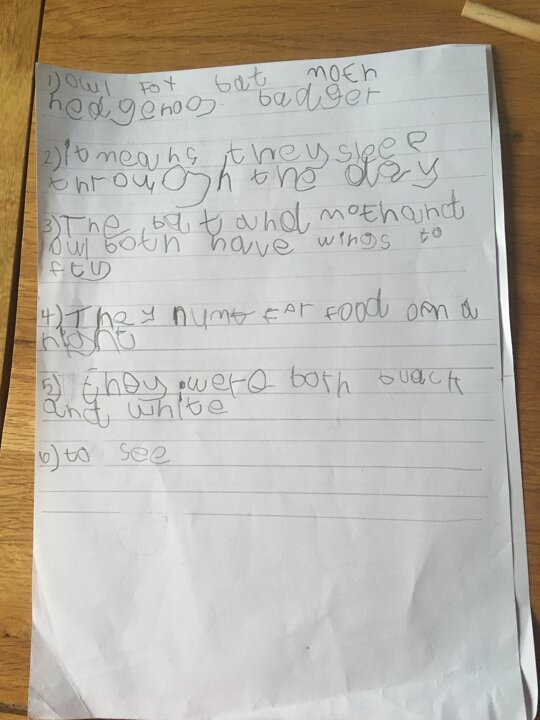 1) owl fox bat moth
hedgehog badger
2) It means they sleep
through the day
3) The bat and moth and
owl both have wings to
fly
4) They hunt for food on a
night
5) they were both black
and white
6) to see